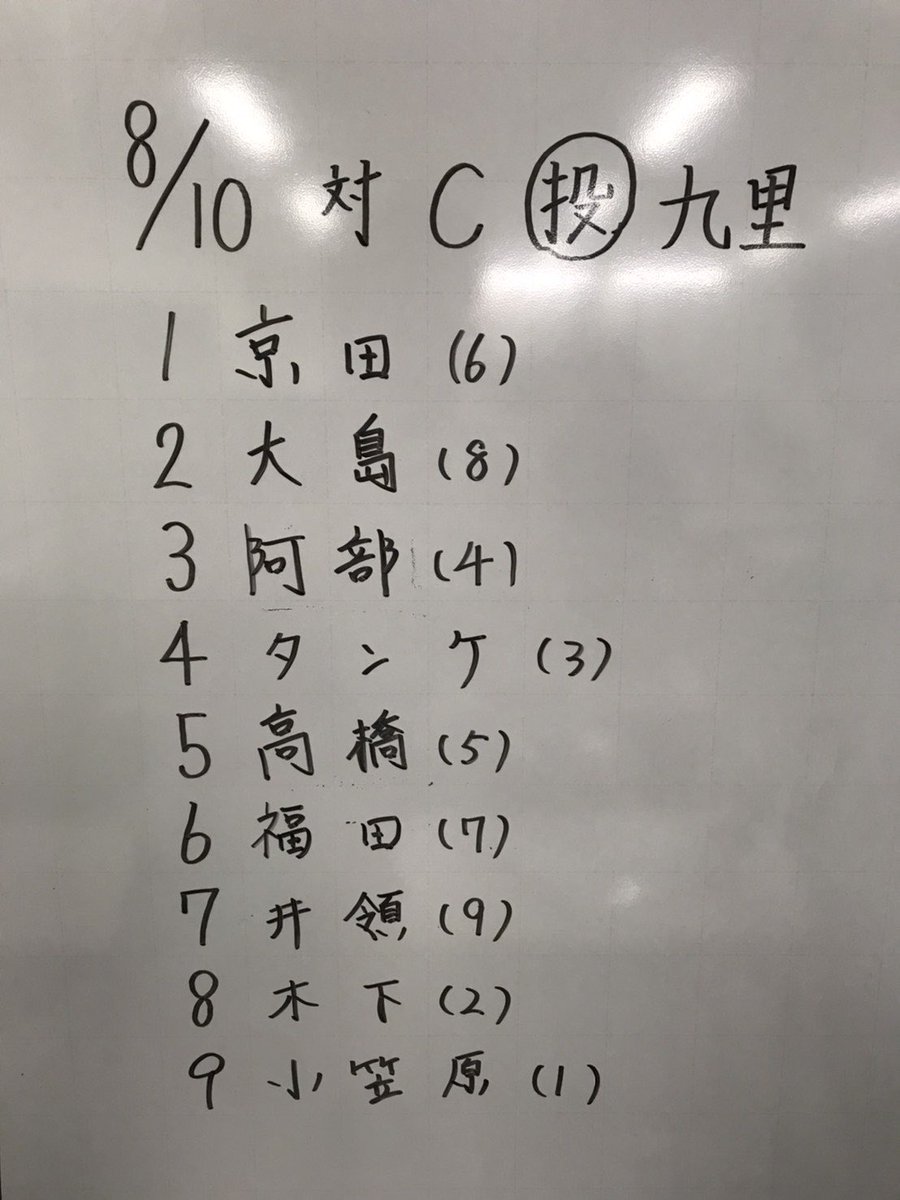 8/10 対 C 投 九里
1 京田 (6)
2 大島 (8)
3 阿部 (4)
4 タンケ (3)
5 高橋 (5)
6 福田 (7)
7 井領 (9)
8 木下 (2)
9 小笠原 (1)